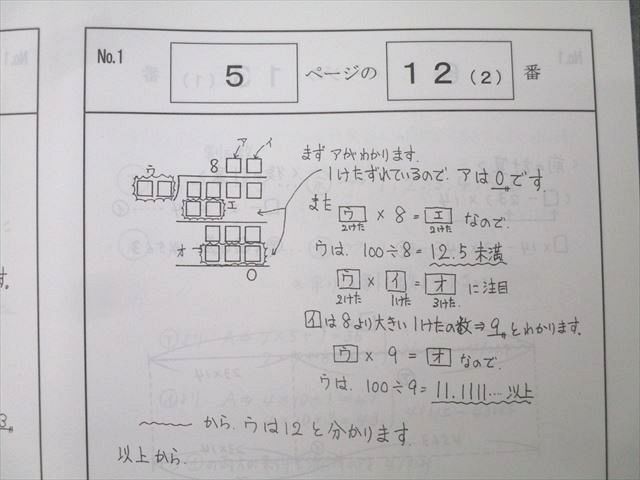 No.1
5 ページの 12(2) 番
ア イ
8
ウ
エ
オ
0
まず アがわかります。
1けたずれているので、アは 0 です。
また
ウ × 8 = エ なので、
2けた 2けた
ウは、100÷8=12.5 未満
ウ × イ = オ に注目
2けた 1けた 3けた
イは8より大きい1けたの数⇒9とわかります。
ウ × 9 = オ なので、
ウは、100÷9=11.1111…以上
から、ウは12と分かります。
以上から、
す。
3